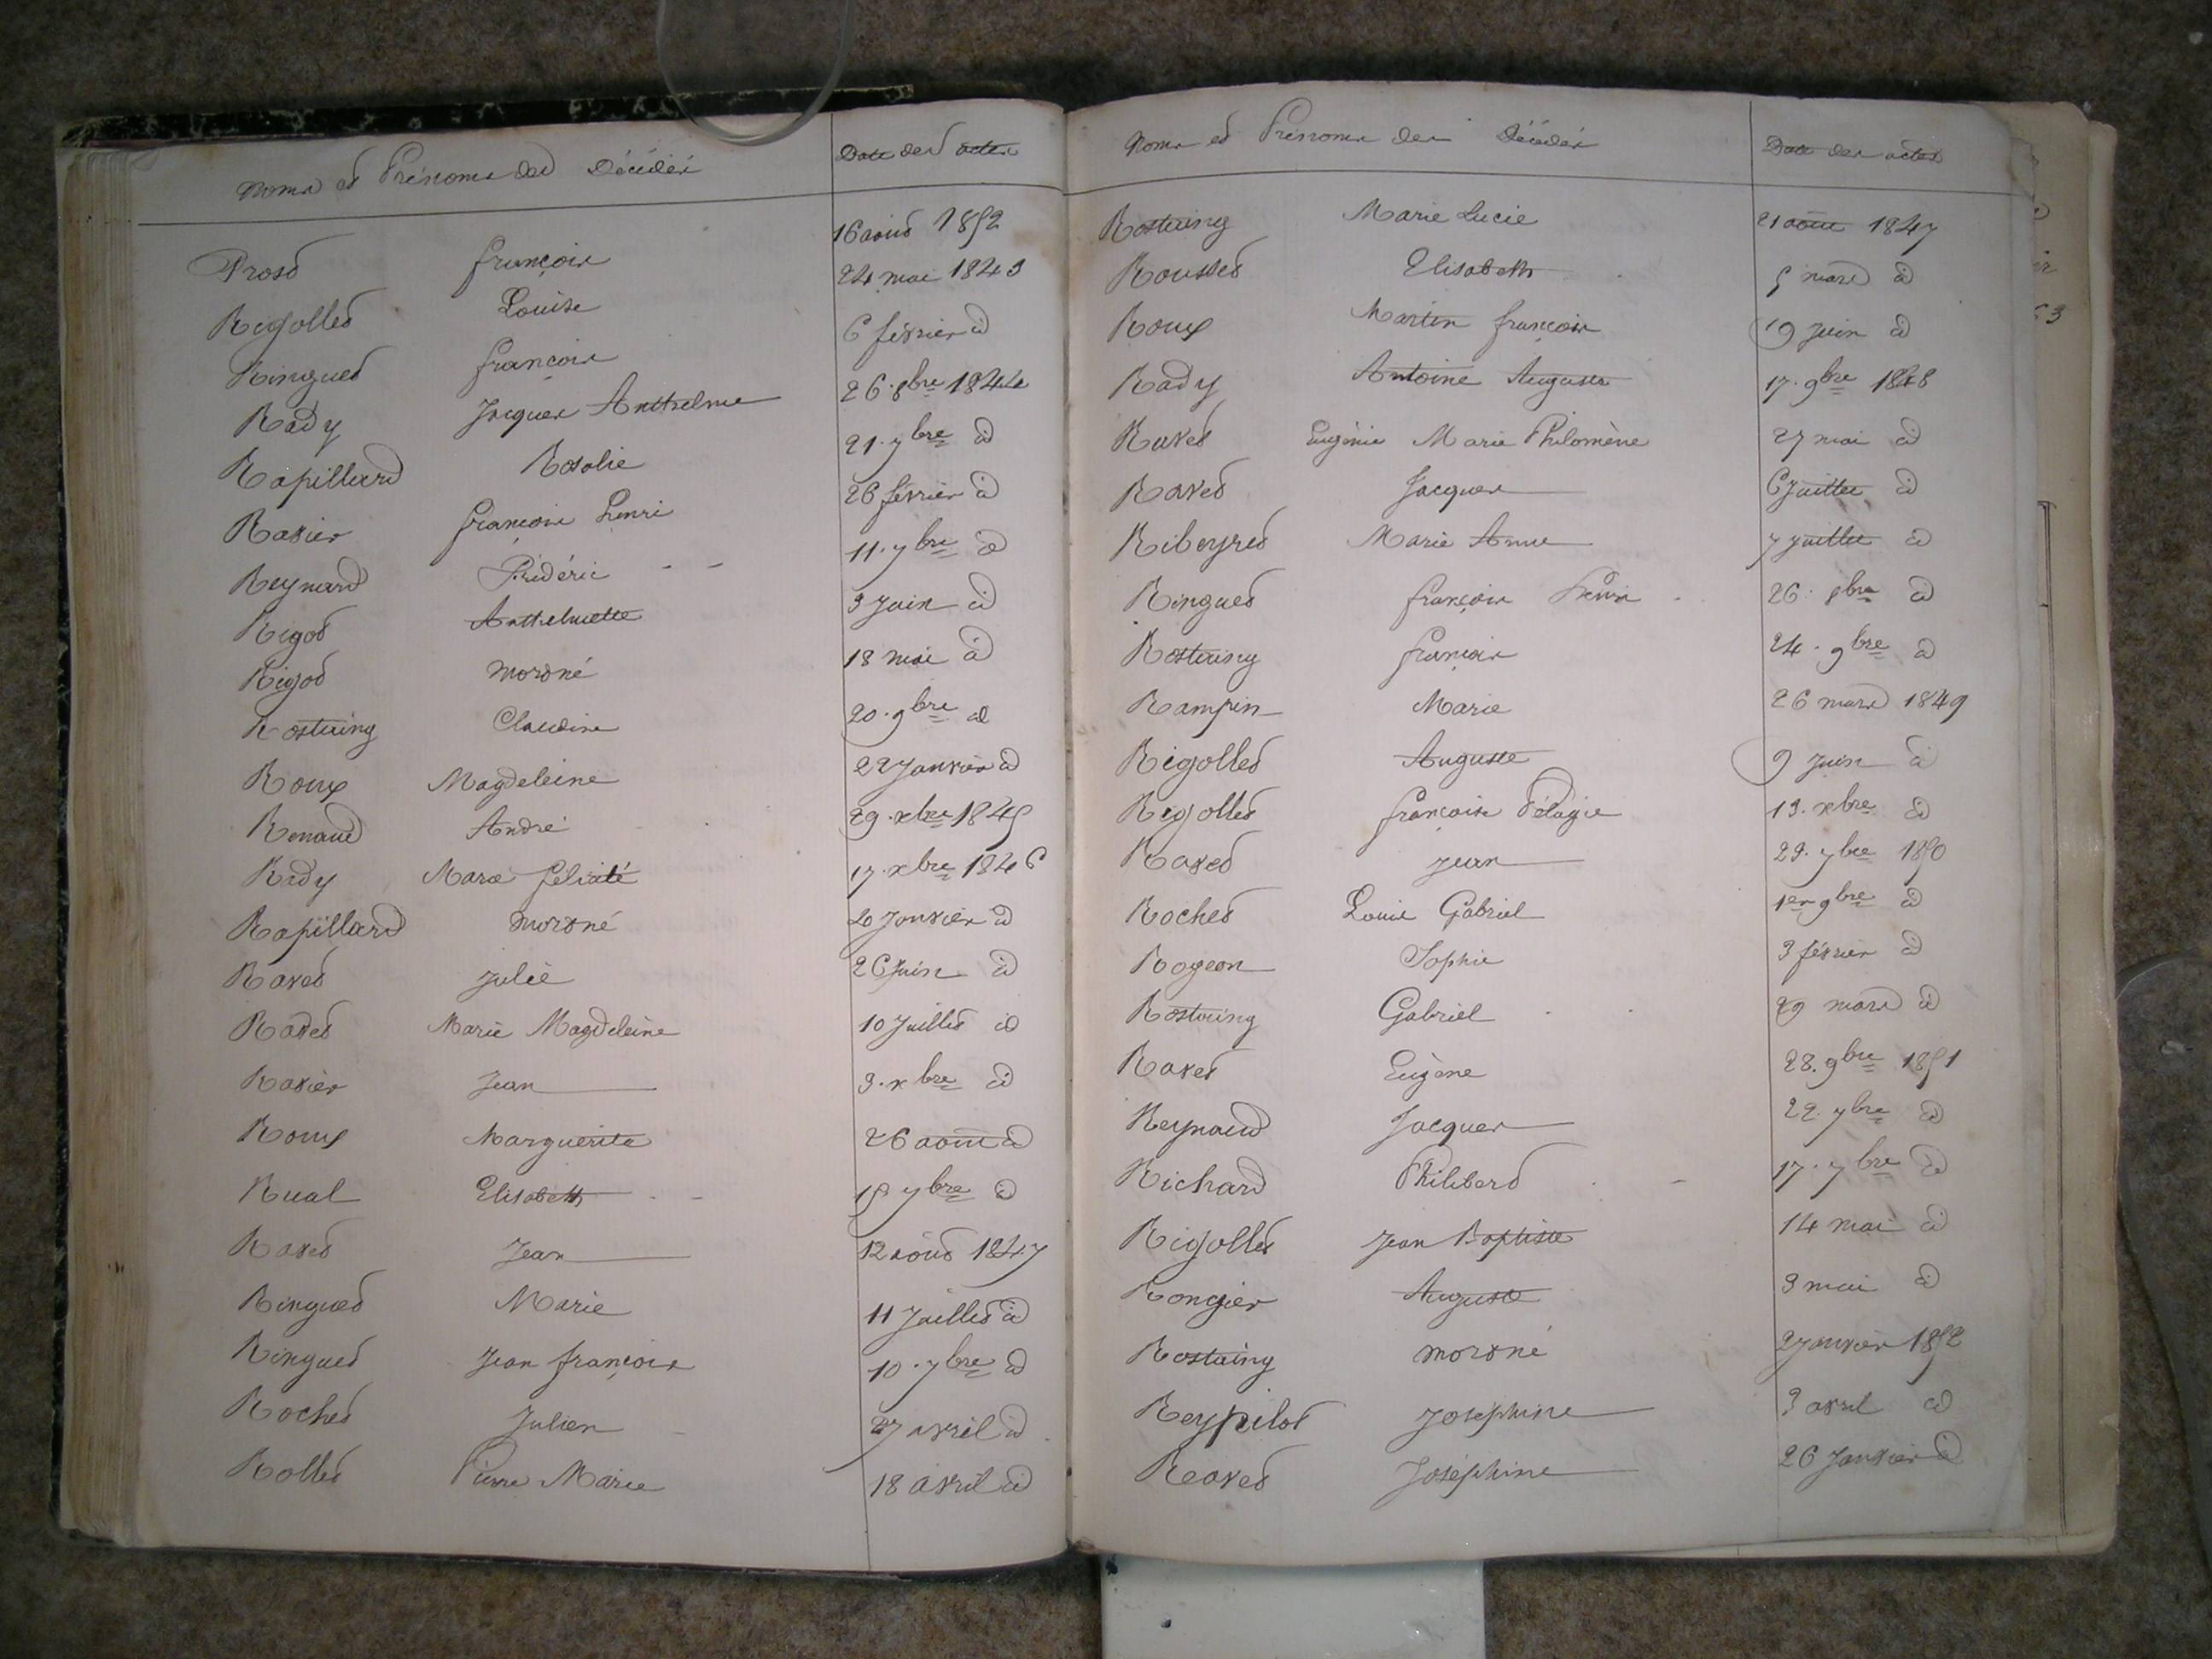 Noms et Prénoms des Décédés Date des actes
Prost François 16 août 1852
Rigollet Louise 24 mai 1843
Ringuet François 6 février id
Rady Jacques Anthelme 26 8bre 1844
Rapillard Rosalie 21 7bre id
Ravier François Henri 26 février id
Reynard Frédéric 11 7bre id
Rigot Anthelmette 3 Juin id
Rigot mort né 18 mai id
Rostaing Claudine 20 9bre id
Roux Magdeleine 22 Janvier id
Renaud André 29 xbre 1845
Rady Marie Félicité 17 xbre 1846
Rapillard mort né 20 Janvier id
Ravet Julie 26 Juin id
Ravet Marie Magdeleine 10 Juillet id
Ravier Jean 3 xbre id
Roux Marguerite 26 août id
Rual Elisabeth 15 7bre id
Ravet Jean 12 août 1847
Ringuet Marie 11 Juillet id
Ringuet Jean François 10 7bre id
Rochet Julien 27 avril id
Rollet Pierre Marie 18 avril id
Noms et Prénoms des Décédés Date des actes
Rostaing Marie Lucie 21 août 1847
Rousset Elisabeth 5 mars id
Roux Martin François 19 Juin id
Rady Antoine Auguste 17 9bre 1848
Ravet Eugénie Marie Philomène 27 mai id
Ravet Jacques 6 Juillet id
Ribeyret Marie Anne 7 Juillet id
Ringuet François Henri 26 8bre id
Rostaing François 24 9bre id
Rampin Marie 26 mars 1849
Rigollet Auguste 9 Juin id
Rigollet Françoise Pélagie 13 xbre id
Ravet Jean 23 7bre 1850
Rochet Louis Gabriel 1er 9bre id
Rogeon Sophie 3 février id
Rostaing Gabriel 29 mars id
Ravet Eugène 28 9bre 1851
Reynaud Jacques 22 7bre id
Richard Philibert 17 7bre id
Rigollet Jean Baptiste 14 mai id
Rongier Auguste 3 mai id
Rostaing mort né 2 Janvier 1852
Reypilot Joséphine 3 avril id
Ravet Joséphine 26 Janvier id